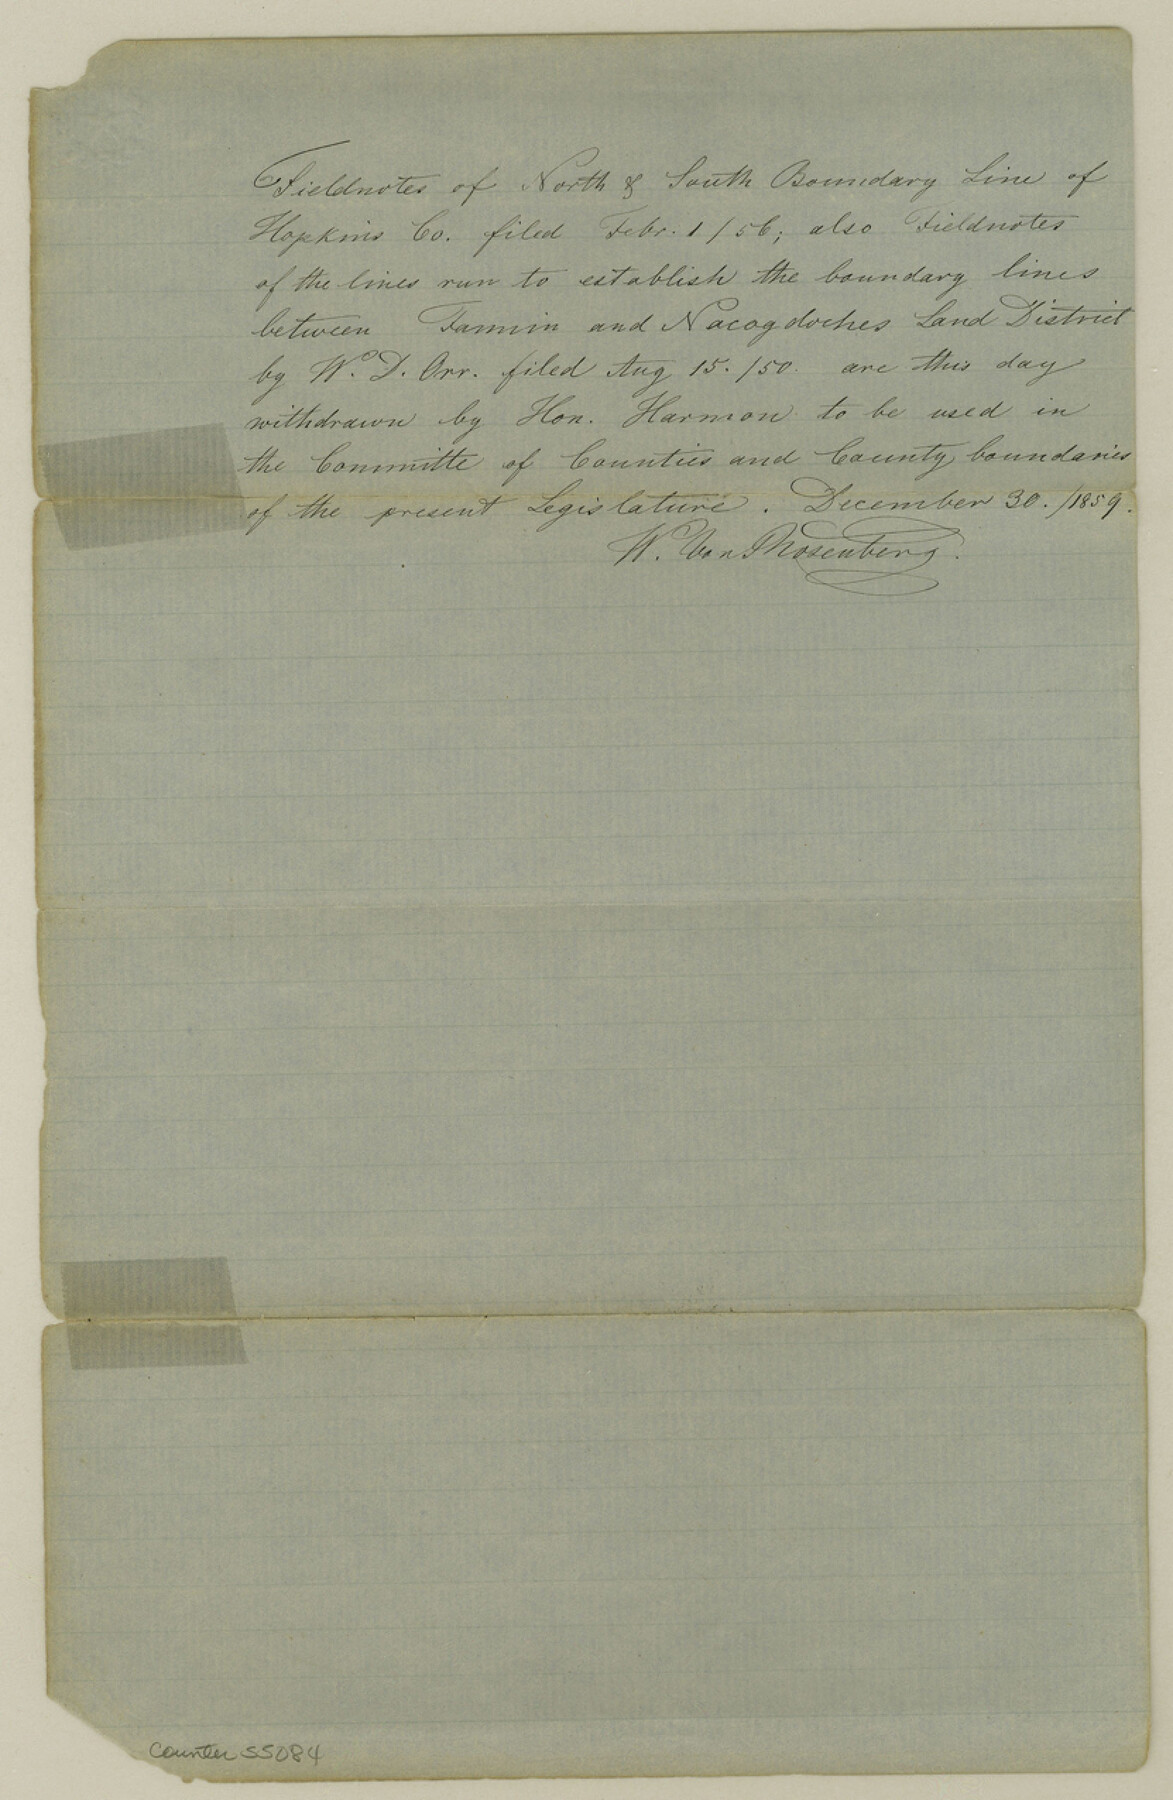 Fieldnotes of North & South Boundary Line of
Hopkins Co. filed Febr. 1 / 56; also Fieldnotes
of the lines run to establish the boundary lines
between Fannin and Nacogdoches Land District
by W. D. Orr. filed Aug 15. /50. are this day
withdrawn by Hon. Harmon to be used in
the Committe of Counties and County boundaries
of the present Legislature. December 30. /1859.
W. Von Rosenberg.
Counter 55084